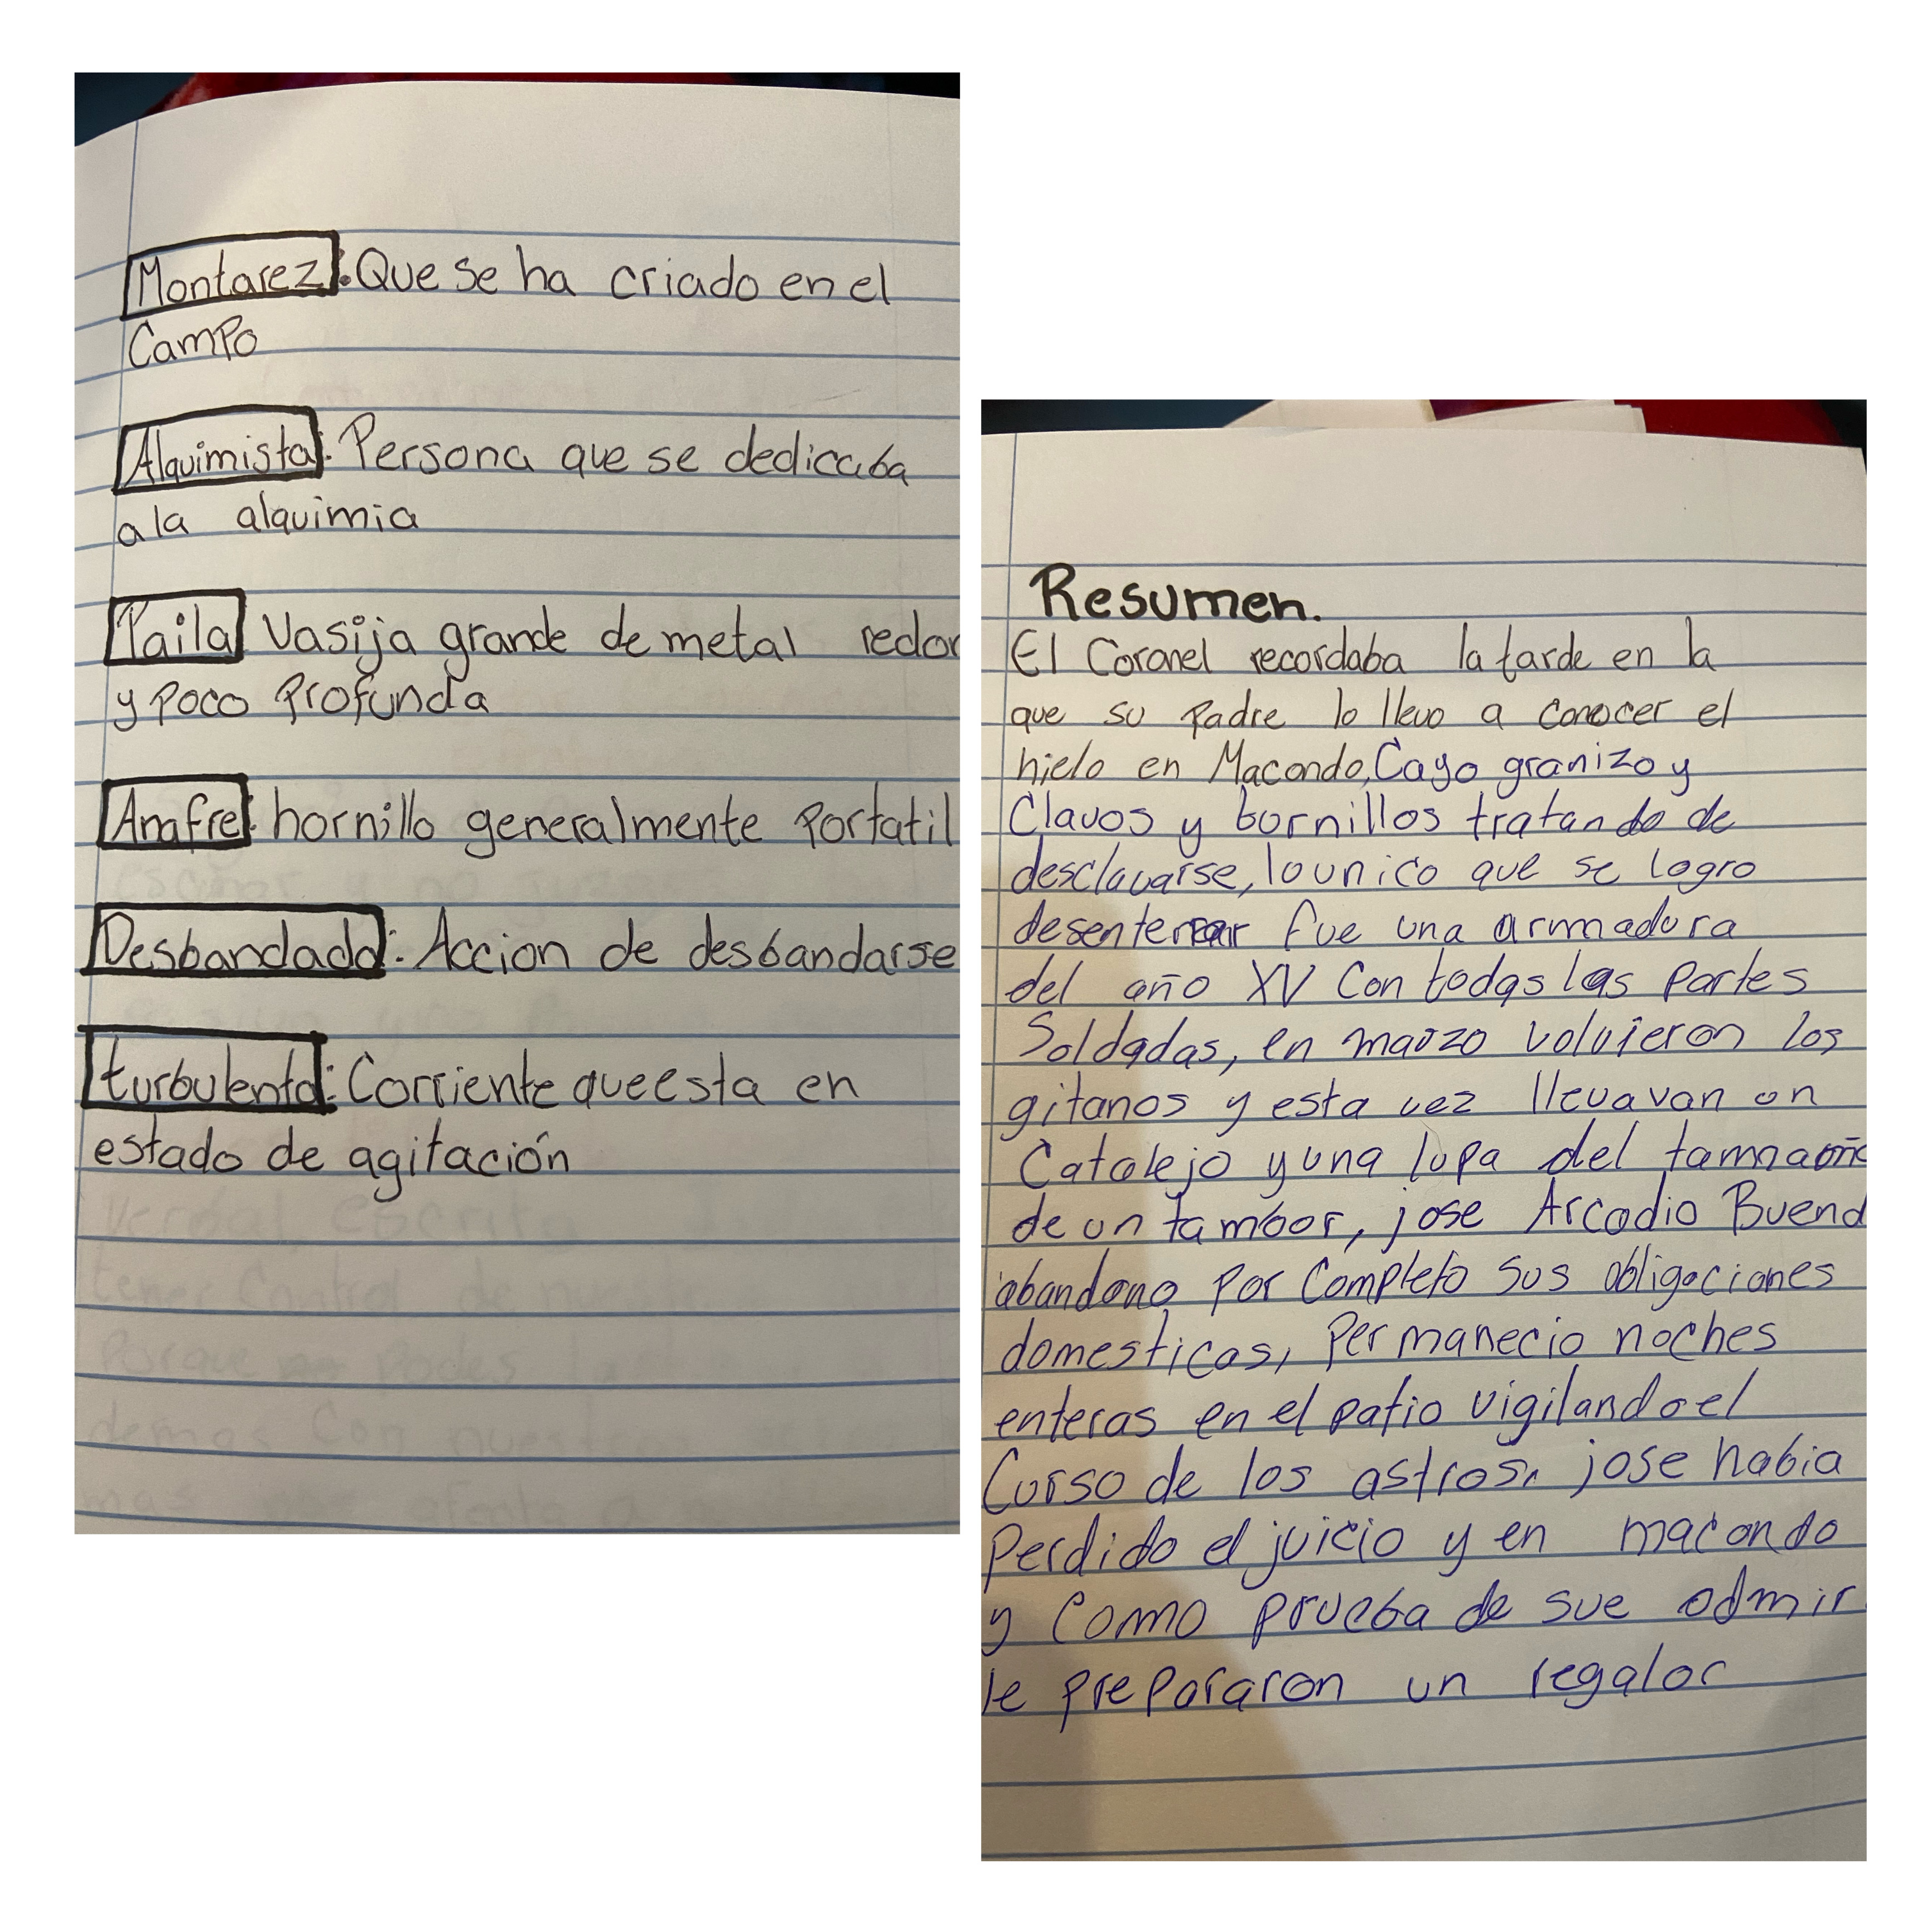 Montarez: Que se ha criado en el
Campo
Alquimista: Persona que se dedicaba
a la alquimia
Paila Vasija grande de metal redon
y poco Profunda
Anafre: hornillo generalmente Portatil
Desbandada: Accion de desbandarse
turbulenta: Corriente que esta en
estado de agitación
Resumen.
El Coronel recordaba la tarde en la
que su Padre lo llevo a conocer el
hielo en Macondo, Cayo granizo y
Clavos y tornillos tratando de
desclavarse, lo unico que se logro
desenterrar fue una armadura
del año XV Con todas las Partes
Soldadas, en marzo volvieron los
gitanos y esta vez llevavan un
Catalejo y una lupa del
de un tambor, jose Arcadio Buend
abandono Por Completo sus obligaciones
domesticas, Permanecio noches
enteras en el patio vigilando el
Curso de los astros, jose habia
Perdido el juicio y en macondo
y Como prueba de sue admir
le prepararon un regalor